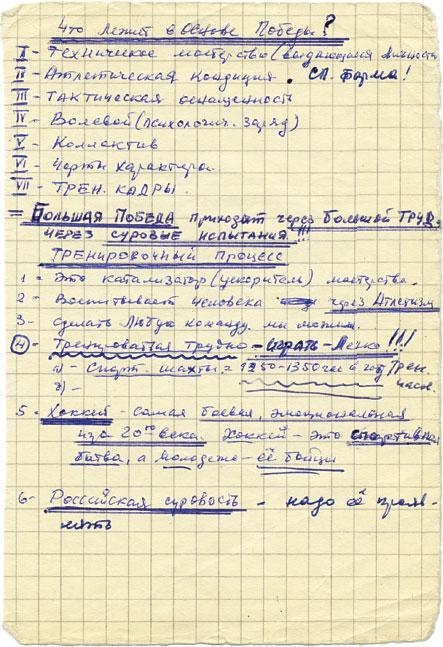 Что лежит в основе Победы?
I - Техническое мастерство (выдающаяся личность
II - Атлетическая кондиция. Сп. форма!
III - Тактическая оснащенность
IV - Волевой (психологич. заряд)
V - Коллектив
VI - Черты характера.
VII - Трен. кадры.
= Большая Победа приходит через большой труд,
через суровые испытания!!!
Тренировочный процесс
1 - Это катализатор (ускоритель) мастерства.
2 - Воспитывает человека через Атлетизм
3 - Сделать любую команду мы можем.
4 - Тренироваться трудно - играть - легко!!!
а) - Спорт. шахты = 1250-1350 час в год Трен.
б) - часов.
5 - Хоккей - самая боевая, эмоциональная
игра 20го века. Хоккей - это спортивная
битва, а молодежь - её бойцы
6 - Российская суровость - надо её прояв-
лять